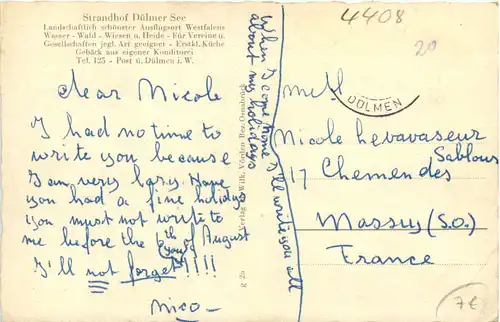 Strandhof Dülmer See
Landschaftlich schönster Ausflugsort Westfalens
Wasser - Wald - Wiesen u. Heide - Für Vereine u.
Gesellschaften jegl. Art geeignet - Erstkl. Küche
Gebäck aus eigener Konditorei
Tel. 125 - Post ü. Dülmen i. W.
Dear Nicole
I had no time to
write you because
I am very lazy. Hope
you had a fine holidays
you must not write to
me before the 6th of August
I'll not forget!!!!
Nico
When I come home I'll write you all
about my holidays
Verlag Wilk. Vörden Bez. Osnabrück
g 20
4408
20
DÜLMEN
Melle
Nicole Levavasseur
17 Chemen des Sablons
Massy (S.O.)
France
7€